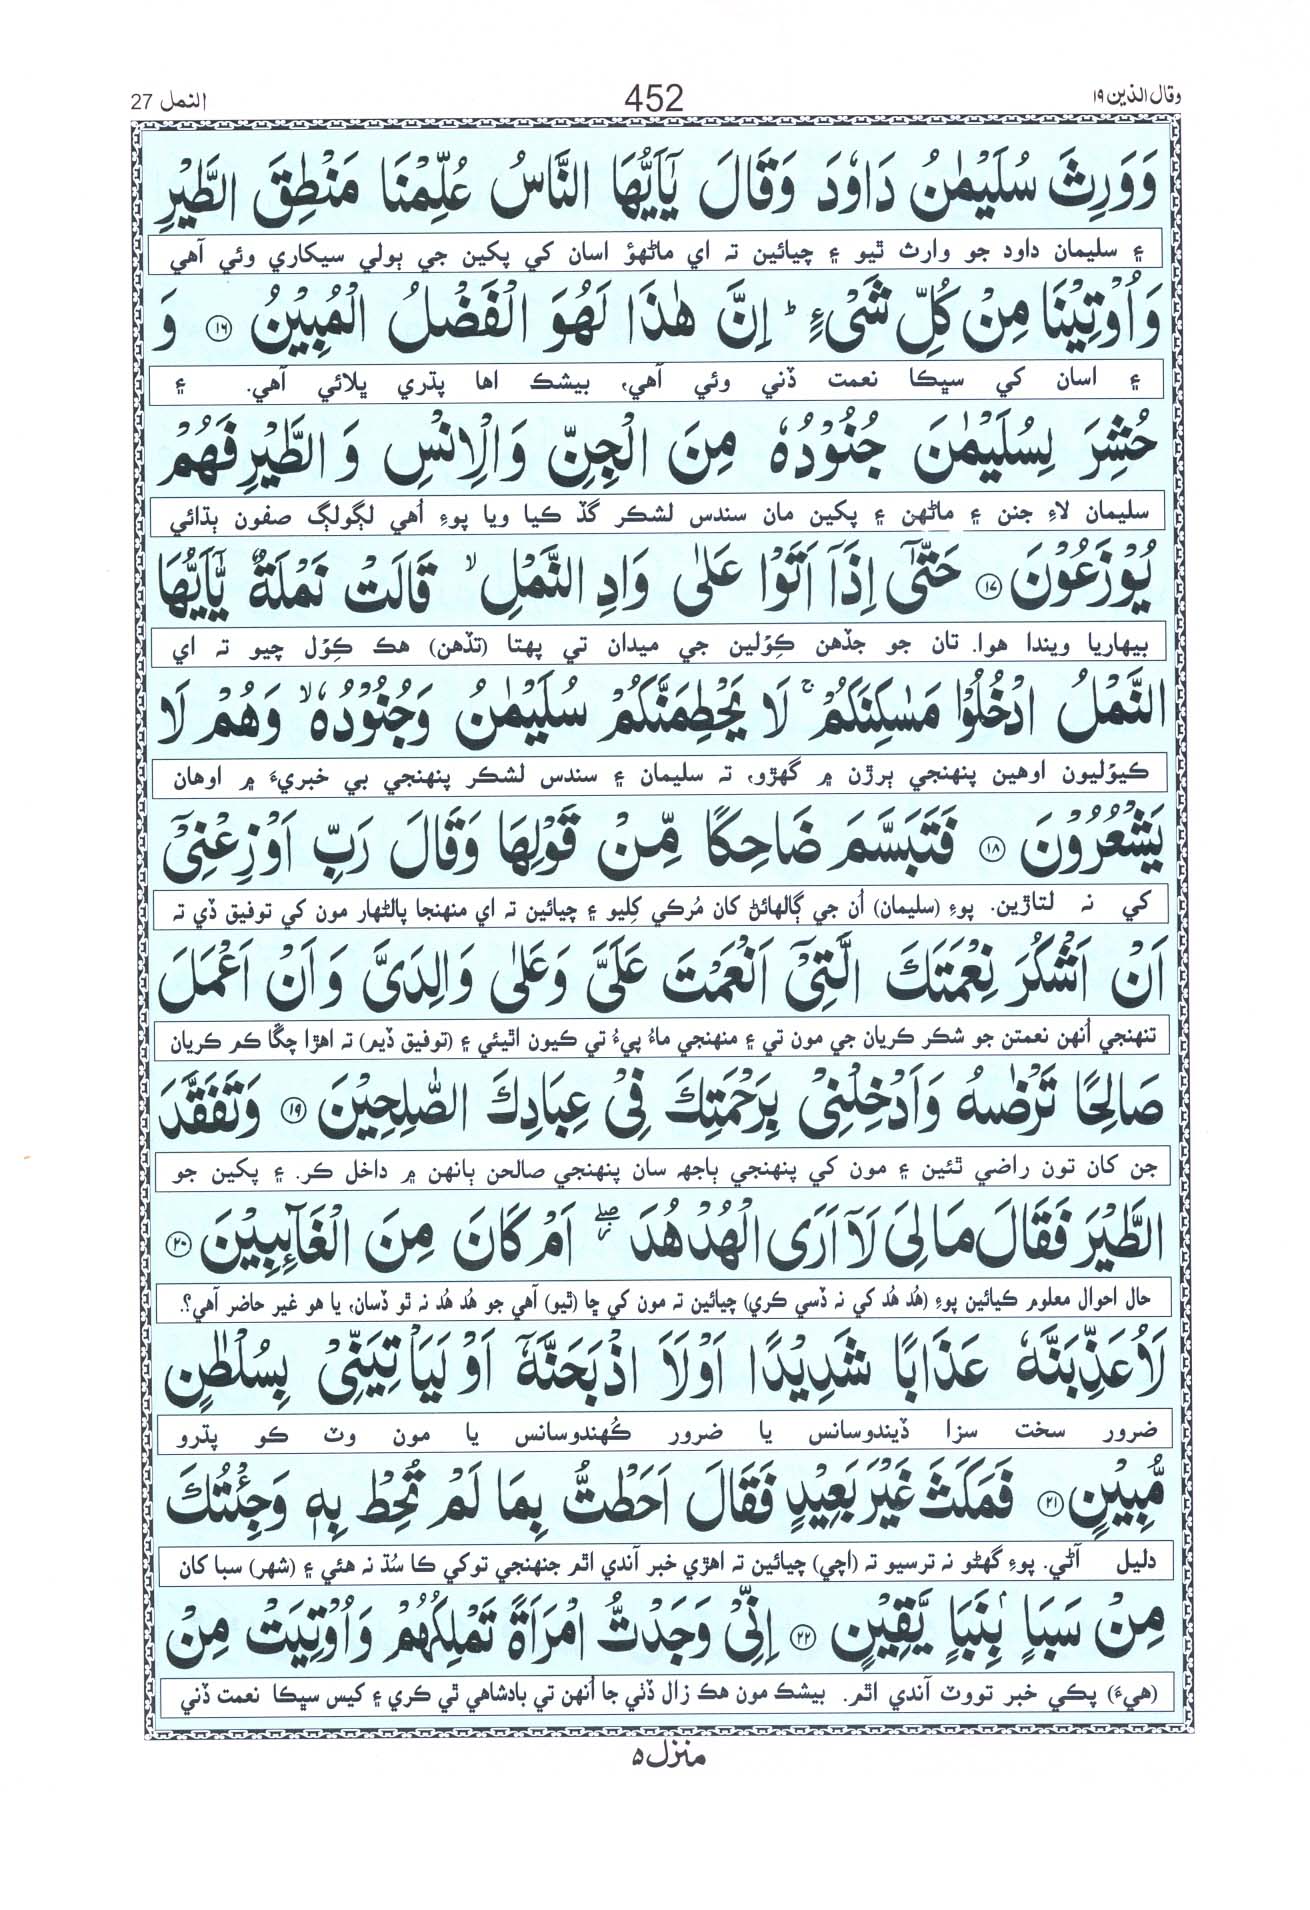 وقال الذين ١٩
452
النمل 27
وَوَرِثَ سُلَيْمٰنُ دَاوٗدَ وَقَالَ يٰۤاَيُّهَا النَّاسُ عُلِّمْنَا مَنْطِقَ الطَّيْرِ
۽ سليمان داود جو وارث ٿيو ۽ چيائين ته اي ماڻهؤ اسان کي پکين جي ٻولي سيکاري وئي آهي
وَاُوْتِيْنَا مِنْ كُلِّ شَیْءٍ ؕ اِنَّ هٰذَا لَهُوَ الْفَضْلُ الْمُبِيْنُ ۝۱۶ وَ
۽ اسان کي سڀڪا نعمت ڏني وئي آهي، بيشڪ اها پڌري ڀلائي آهي. ۽
حُشِرَ لِسُلَيْمٰنَ جُنُوْدُهٗ مِنَ الْجِنِّ وَالْاِنْسِ وَ الطَّيْرِ فَهُمْ
سليمان لاءِ جنن ۽ ماڻهن ۽ پکين مان سندس لشڪر گڏ کيا ويا پوءِ اُهي لڳولڳ صفون ٻڌائي
يُوْزَعُوْنَ ۝۱۷ حَتّٰۤى اِذَاۤ اَتَوْا عَلٰى وَادِ النَّمْلِ ۙ قَالَتْ نَمْلَةٌ يّٰۤاَيُّهَا
بيهاريا ويندا هوا. تان جو جڏهن ڪِوّلين جي ميدان تي پهتا (تڏهن) هڪ ڪِوّل چيو ته اي
النَّمْلُ ادْخُلُوْا مَسٰكِنَكُمْ ۚ لَا يَحْطِمَنَّكُمْ سُلَيْمٰنُ وَجُنُوْدُهٗ ۙ وَهُمْ لَا
ڪيوّليون اوهين پنهنجي ٻرڙن ۾ گهڙو، ته سليمان ۽ سندس لشڪر پنهنجي بي خبريءَ ۾ اوهان
يَشْعُرُوْنَ ۝۱۸ فَتَبَسَّمَ ضَاحِكًا مِّنْ قَوْلِهَا وَقَالَ رَبِّ اَوْزِعْنِیْۤ
کي نه لتاڙين. پوءِ (سليمان) اُن جي ڳالهائڻ کان مُرڪي کِليو ۽ چيائين ته اي منهنجا پالڻهار مون کي توفيق ڏي ته
اَنْ اَشْكُرَ نِعْمَتَكَ الَّتِیْۤ اَنْعَمْتَ عَلَیَّ وَعَلٰى وَالِدَیَّ وَ اَنْ اَعْمَلَ
تنهنجي اُنهن نعمتن جو شڪر ڪريان جي مون تي ۽ منهنجي ماءُ پيءُ تي ڪيون اٿيئي ۽ (توفيق ڏيم) ته اهڙا چڱا ڪم ڪريان
صَالِحًا تَرْضٰىهُ وَاَدْخِلْنِیْ بِرَحْمَتِكَ فِیْ عِبَادِكَ الصّٰلِحِيْنَ ۝۱۹ وَتَفَقَّدَ
جن کان تون راضي ٿئين ۽ مون کي پنهنجي ٻاجهہ سان پنهنجي صالحن ٻانهن ۾ داخل ڪر. ۽ پکين جو
الطَّيْرَ فَقَالَ مَا لِیَ لَاۤ اَرَى الْهُدْهُدَ ۖ اَمْ كَانَ مِنَ الْغَآئِبِيْنَ ۝۲۰
حال احوال معلوم ڪيائين پوءِ (هُد هُد کي نہ ڏسي ڪري) چيائين ته مون کي ڇا (ٿيو) آهي جو هُد هُد نہ ٿو ڏسان، يا هو غير حاضر آهي؟.
لَاُعَذِّبَنَّهٗ عَذَابًا شَدِيْدًا اَوْ لَاَ۠اذْبَحَنَّهٗۤ اَوْ لَيَاْتِيَنِّیْ بِسُلْطٰنٍ
ضرور سخت سزا ڏيندوسانس يا ضرور ڪُهندوسانس يا مون وٽ ڪو پڌرو
مُّبِيْنٍ ۝۲۱ فَمَكَثَ غَيْرَ بَعِيْدٍ فَقَالَ اَحَطْتُّ بِمَا لَمْ تُحِطْ بِهٖ وَجِئْتُكَ
دليل آڻي. پوءِ گهڻو نہ ترسيو ته (اچي) چيائين ته اهڙي خبر آندي اٿم جنهنجي توکي ڪا سُڌ نہ هئي ۽ (شهر) سبا کان
مِنْ سَبَاٍۭ بِنَبَاٍ يَّقِيْنٍ ۝۲۲ اِنِّیْ وَجَدْتُّ امْرَاَةً تَمْلِكُهُمْ وَاُوْتِيَتْ مِنْ
(هيءَ) پڪي خبر تووٽ آندي اٿم. بيشڪ مون هڪ زال ڏٺي جا اُنهن تي بادشاهي ٿي ڪري ۽ کيس سڀڪا نعمت ڏني
منزل ۵